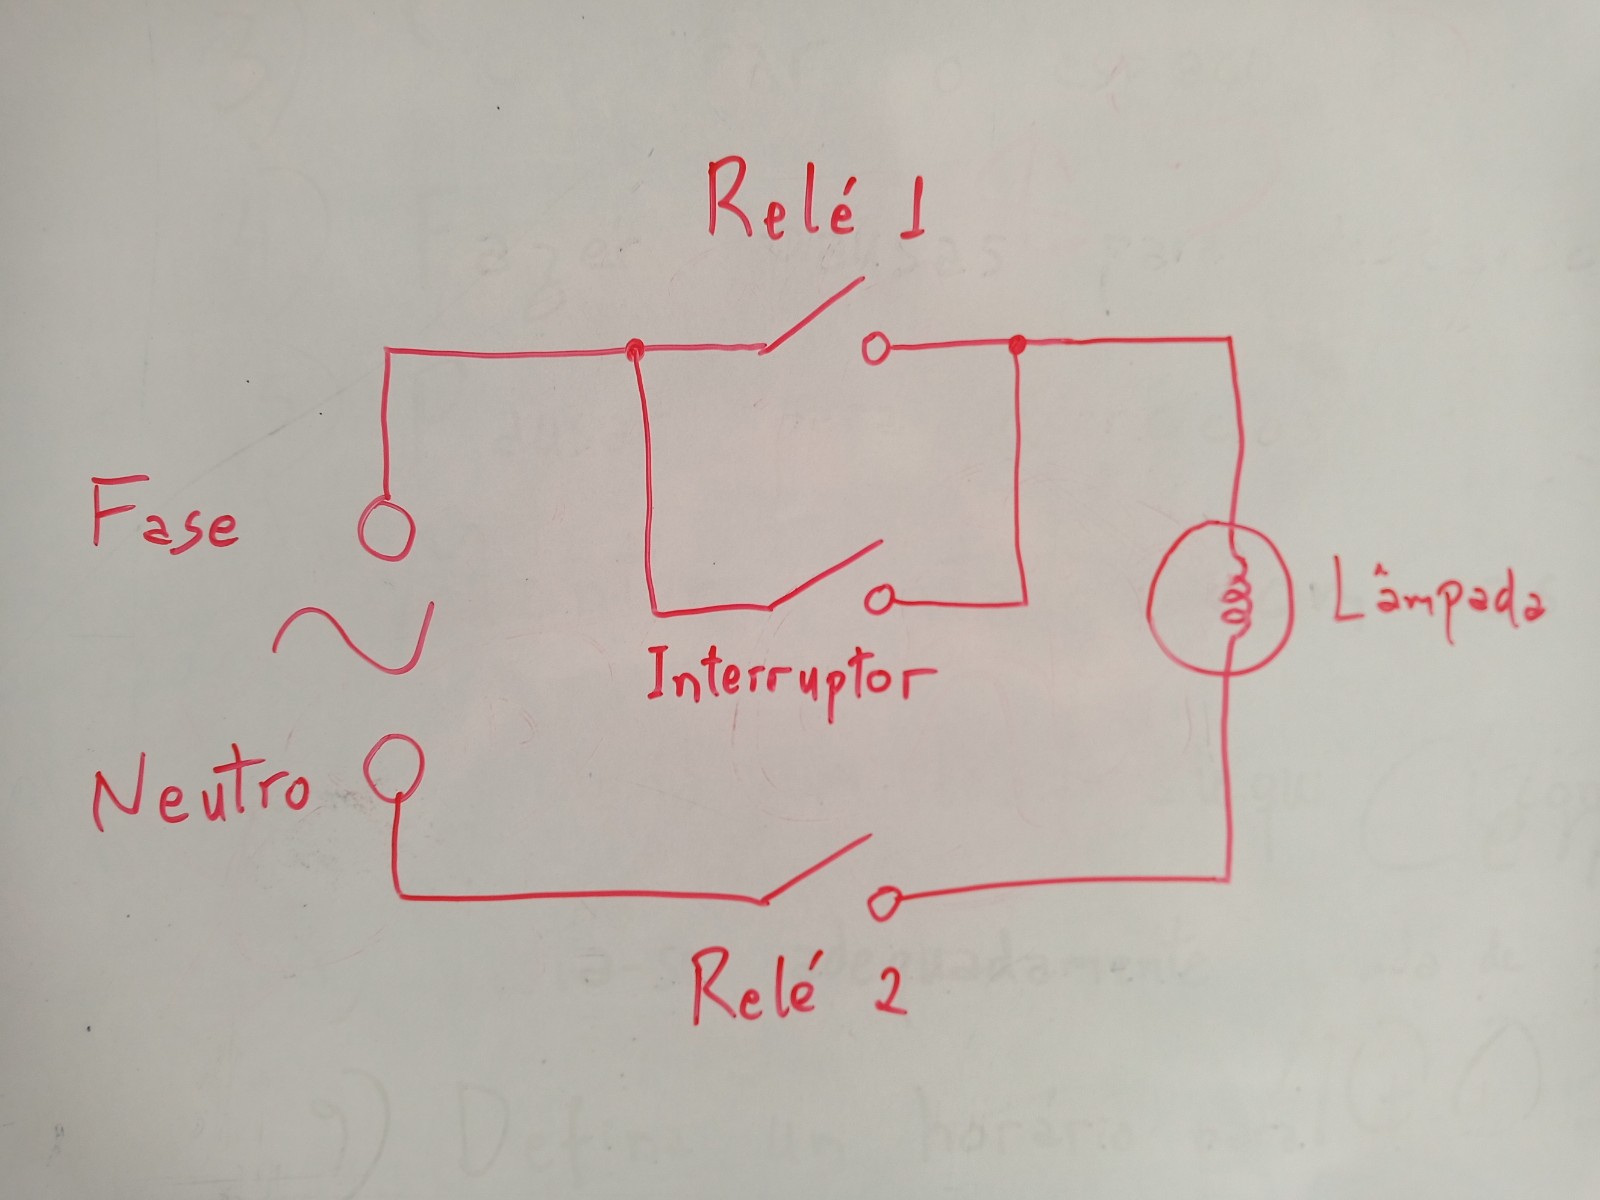 Relé 1
Fase
Interruptor
Lâmpada
Neutro
Relé 2